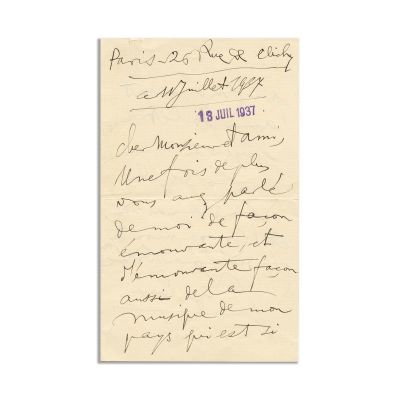 Paris - 26 Rue de Clichy
a 10 Juillet 1937
13 JUIL 1937
Cher Monsieur et ami,
Une fois de plus
vous avez parlé
de moi de façon
émouvante, et
d'émouvante façon
aussi de la
musique de mon
pays qui est si